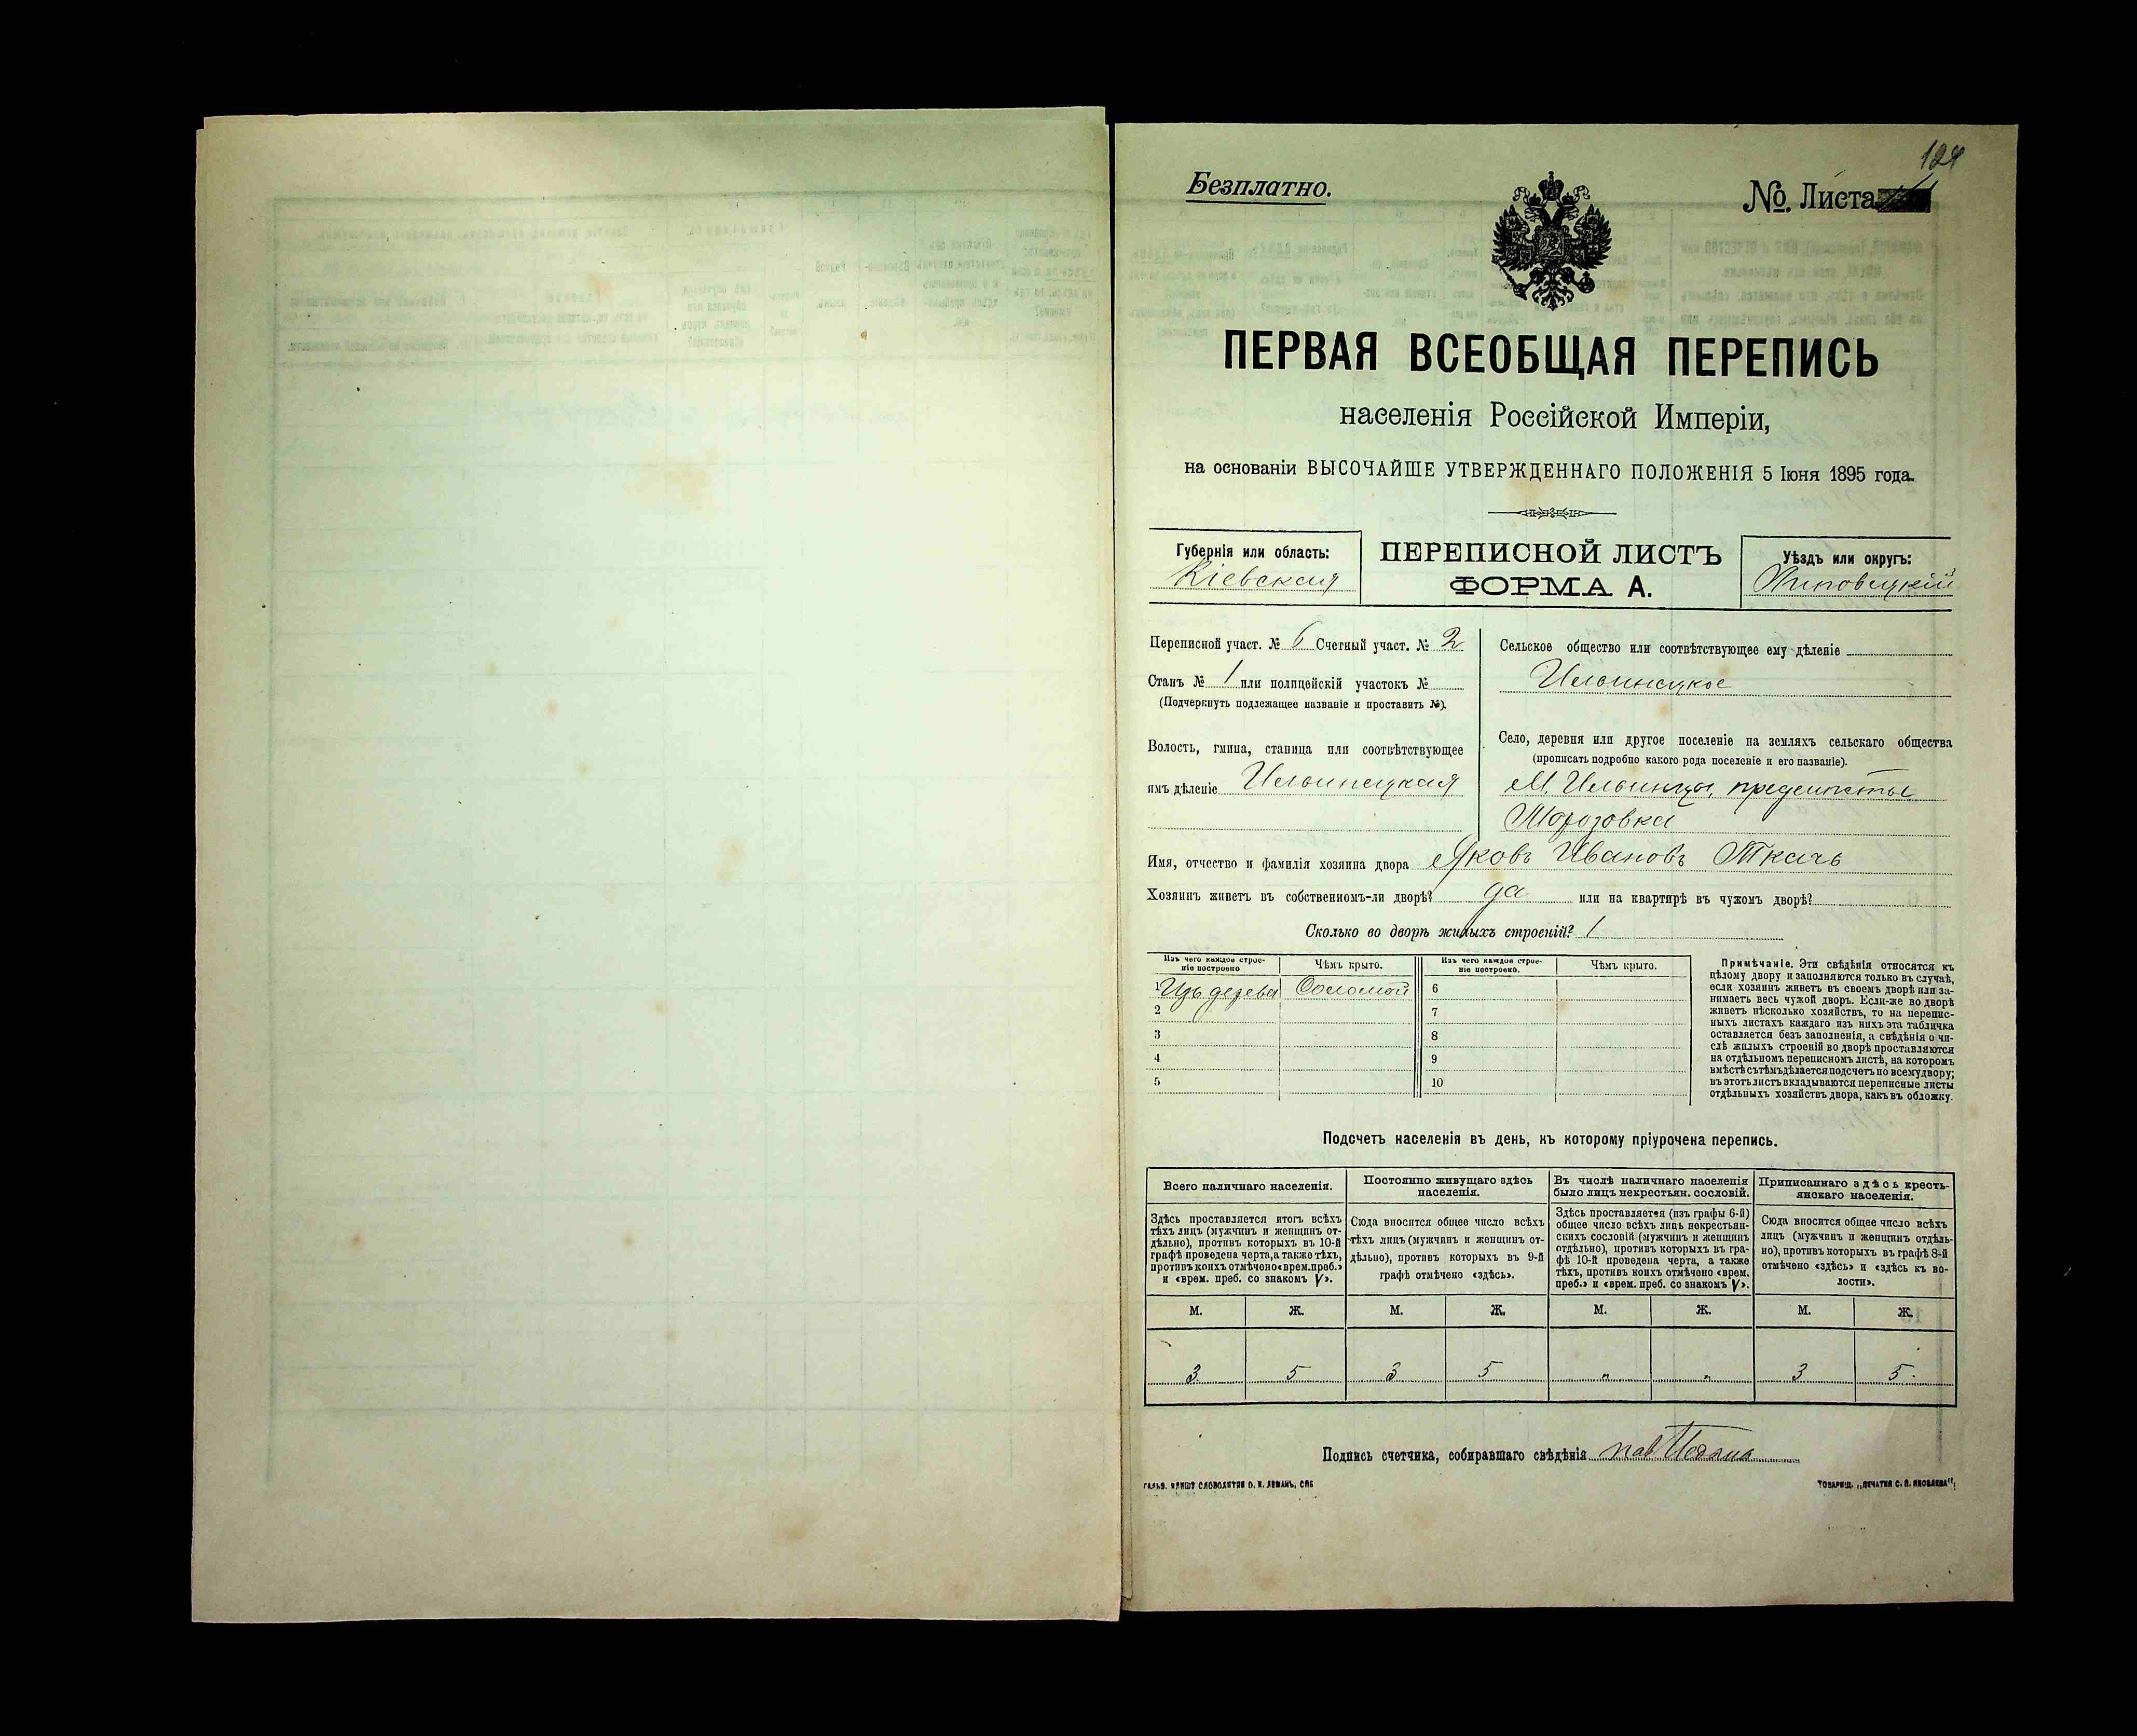 124
Безплатно.
№. Листа
ПЕРВАЯ ВСЕОБЩАЯ ПЕРЕПИСЬ
населенія Россійской Имперіи,
на основаніи ВЫСОЧАЙШЕ УТВЕРЖДЕННАГО ПОЛОЖЕНІЯ 5 Іюня 1895 года.
Губернія или область:
Кіевская
ПЕРЕПИСНОЙ ЛИСТЪ
ФОРМА А.
Уѣздъ или округъ:
Липовецкій
Переписной участ. № 6 Счетный участ. № 2
Станъ № 1 или полицейскій участокъ №
(Подчеркнуть подлежащее названіе и проставить №).
Волость, гмина, станица или соотвѣтствующее
имъ дѣленіе Ильинецкая
Сельское общество или соотвѣтствующее ему дѣленіе
Ильинецкое
Село, деревня или другое поселеніе на земляхъ сельскаго общества
(прописать подробно какого рода поселеніе и его названіе).
М. Ильинцы, предмѣстье
Морозовка
Имя, отчество и фамилія хозяина двора Яковъ Ивановъ Ткачъ
Хозяинъ живетъ въ собственномъ-ли дворѣ? да или на квартирѣ въ чужомъ дворѣ?
Сколько во дворѣ жилыхъ строеній? 1
Изъ чего каждое строе-
ніе построено
Чѣмъ крыто.
Изъ чего каждое строе-
ніе построено.
Чѣмъ крыто.
1 Изъ дерева Соломой 6
2 7
3 8
4 9
5 10
Примѣчаніе. Эти свѣдѣнія относятся къ
цѣлому двору и заполняются только въ случаѣ,
если хозяинъ живетъ въ своемъ дворѣ или за-
нимаетъ весь чужой дворъ. Если-же во дворѣ
живетъ нѣсколько хозяйствъ, то на перепис-
ныхъ листахъ каждаго изъ нихъ эта табличка
оставляется безъ заполненія, а свѣдѣнія о чи-
слѣ жилыхъ строеній во дворѣ проставляются
на отдѣльномъ переписномъ листѣ, на которомъ
вмѣстѣ съ тѣмъ дѣлается подсчетъ по всему двору;
въ этотъ листъ вкладываются переписные листы
отдѣльныхъ хозяйствъ двора, какъ въ обложку.
Подсчетъ населенія въ день, къ которому пріурочена перепись.
Всего наличнаго населенія.
Здѣсь проставляется итогъ всѣхъ
тѣхъ лицъ (мужчинъ и женщинъ от-
дѣльно), противъ которыхъ въ 10-й
графѣ проведена черта, а также тѣхъ,
противъ коихъ отмѣчено «врем. преб.»
и «врем. преб. со знакомъ V».
Постоянно живущаго здѣсь
населенія.
Сюда вносится общее число всѣхъ
тѣхъ лицъ (мужчинъ и женщинъ от-
дѣльно), противъ которыхъ въ 9-й
графѣ отмѣчено «здѣсь».
Въ числѣ наличнаго населенія
было лицъ некрестьян. сословій.
Здѣсь проставляется (изъ графы 6-й)
общее число всѣхъ лицъ некрестьян-
скихъ сословій (мужчинъ и женщинъ
отдѣльно), противъ которыхъ въ гра-
фѣ 10-й проведена черта, а также
тѣхъ, противъ коихъ отмѣчено «врем.
преб.» и «врем. преб. со знакомъ V».
Приписаннаго здѣсь кресть-
янскаго населенія.
Сюда вносится общее число всѣхъ
лицъ (мужчинъ и женщинъ отдѣль-
но), противъ которыхъ въ графѣ 8-й
отмѣчено «здѣсь» и «здѣсь къ во-
лости».
М. Ж. М. Ж. М. Ж. М. Ж.
3 5 3 5 " " 3 5
Подпись счетчика, собиравшаго свѣдѣнія
ГАЛЬВ. КЛИШЕ СЛОВОЛИТНИ О. И. ЛЕМАНЪ, СПБ
ТОВАРИЩ. „ПЕЧАТНЯ С. П. ЯКОВЛЕВА“